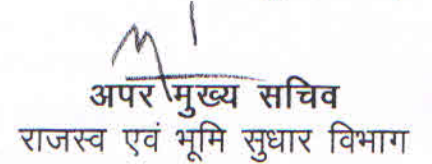 अपर मुख्य सचिव
राजस्व एवं भूमि सुधार विभाग